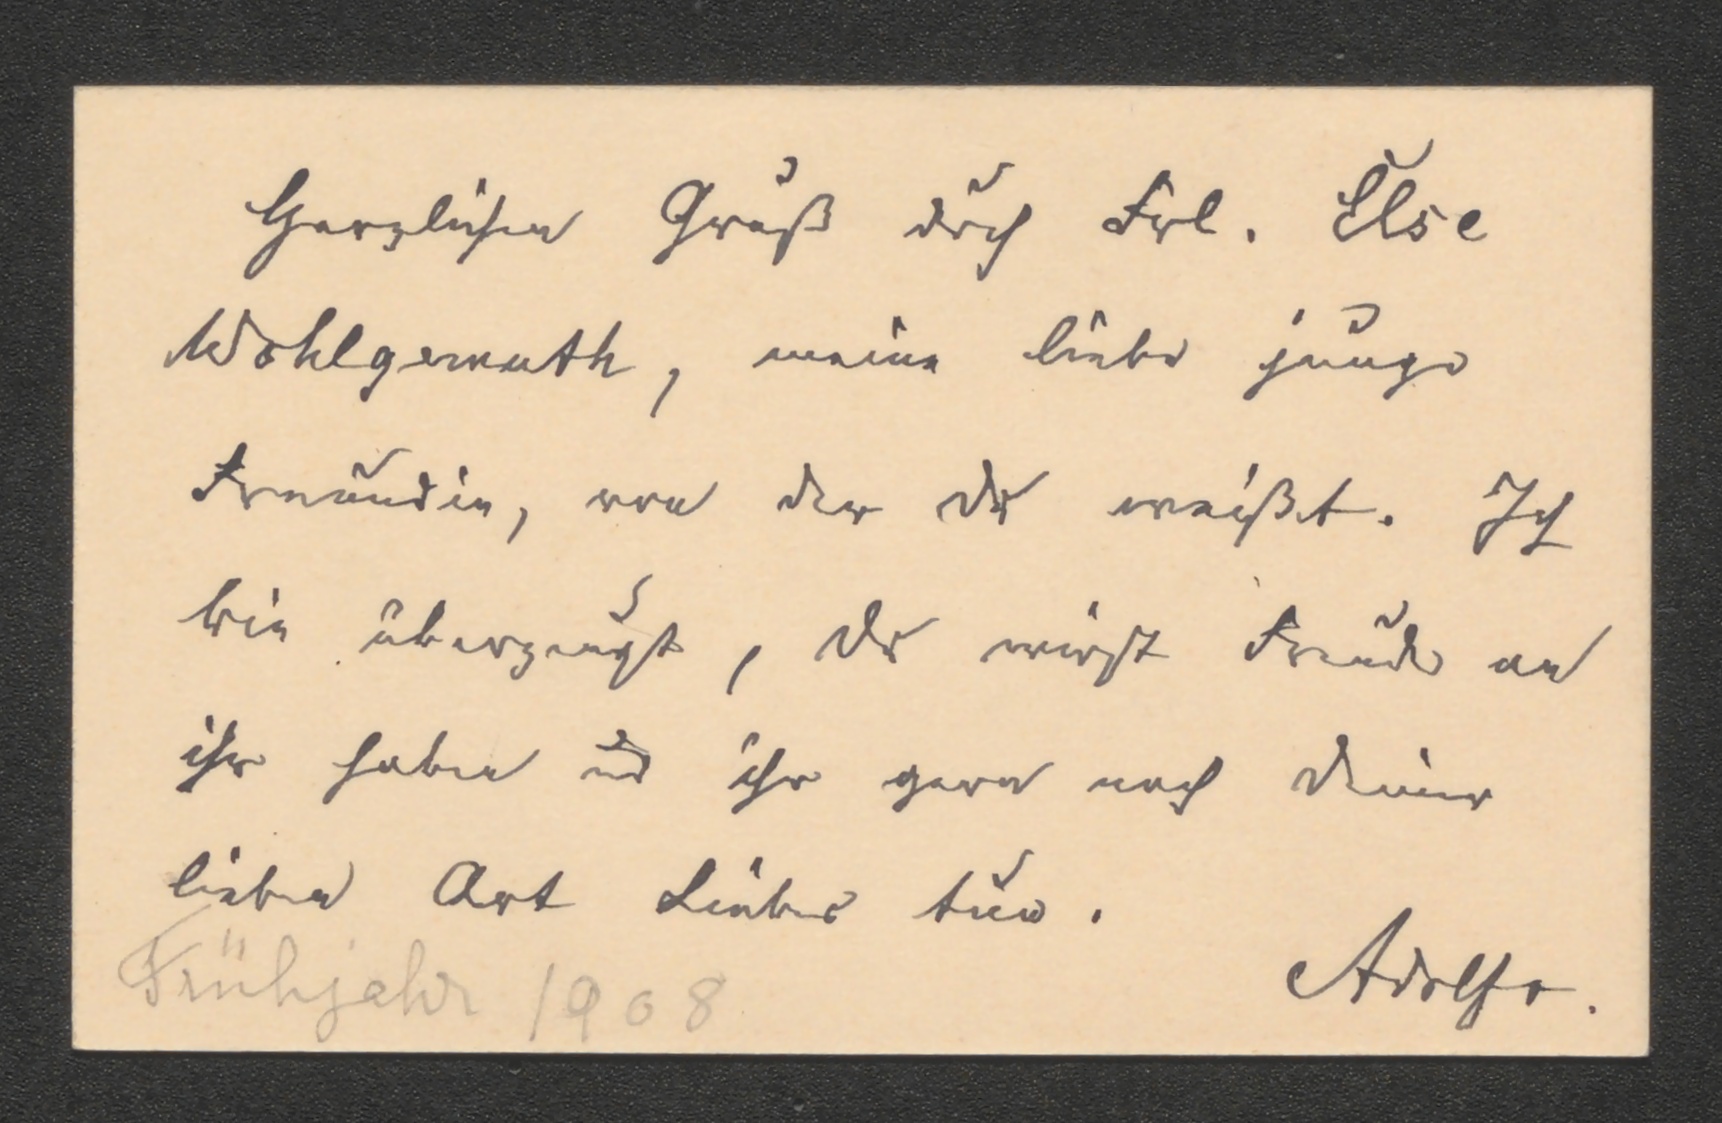 Herzlichen Gruß durch Frl. Else
Wohlgemuth, meine liebe junge
Freundin, von der Du weißt. Ich
bin überzeugt, Du wirst Freude an
ihr haben und ihr gern nach Deiner
lieben Art Liebes tun.
Adolfo.
Frühjahr 1908